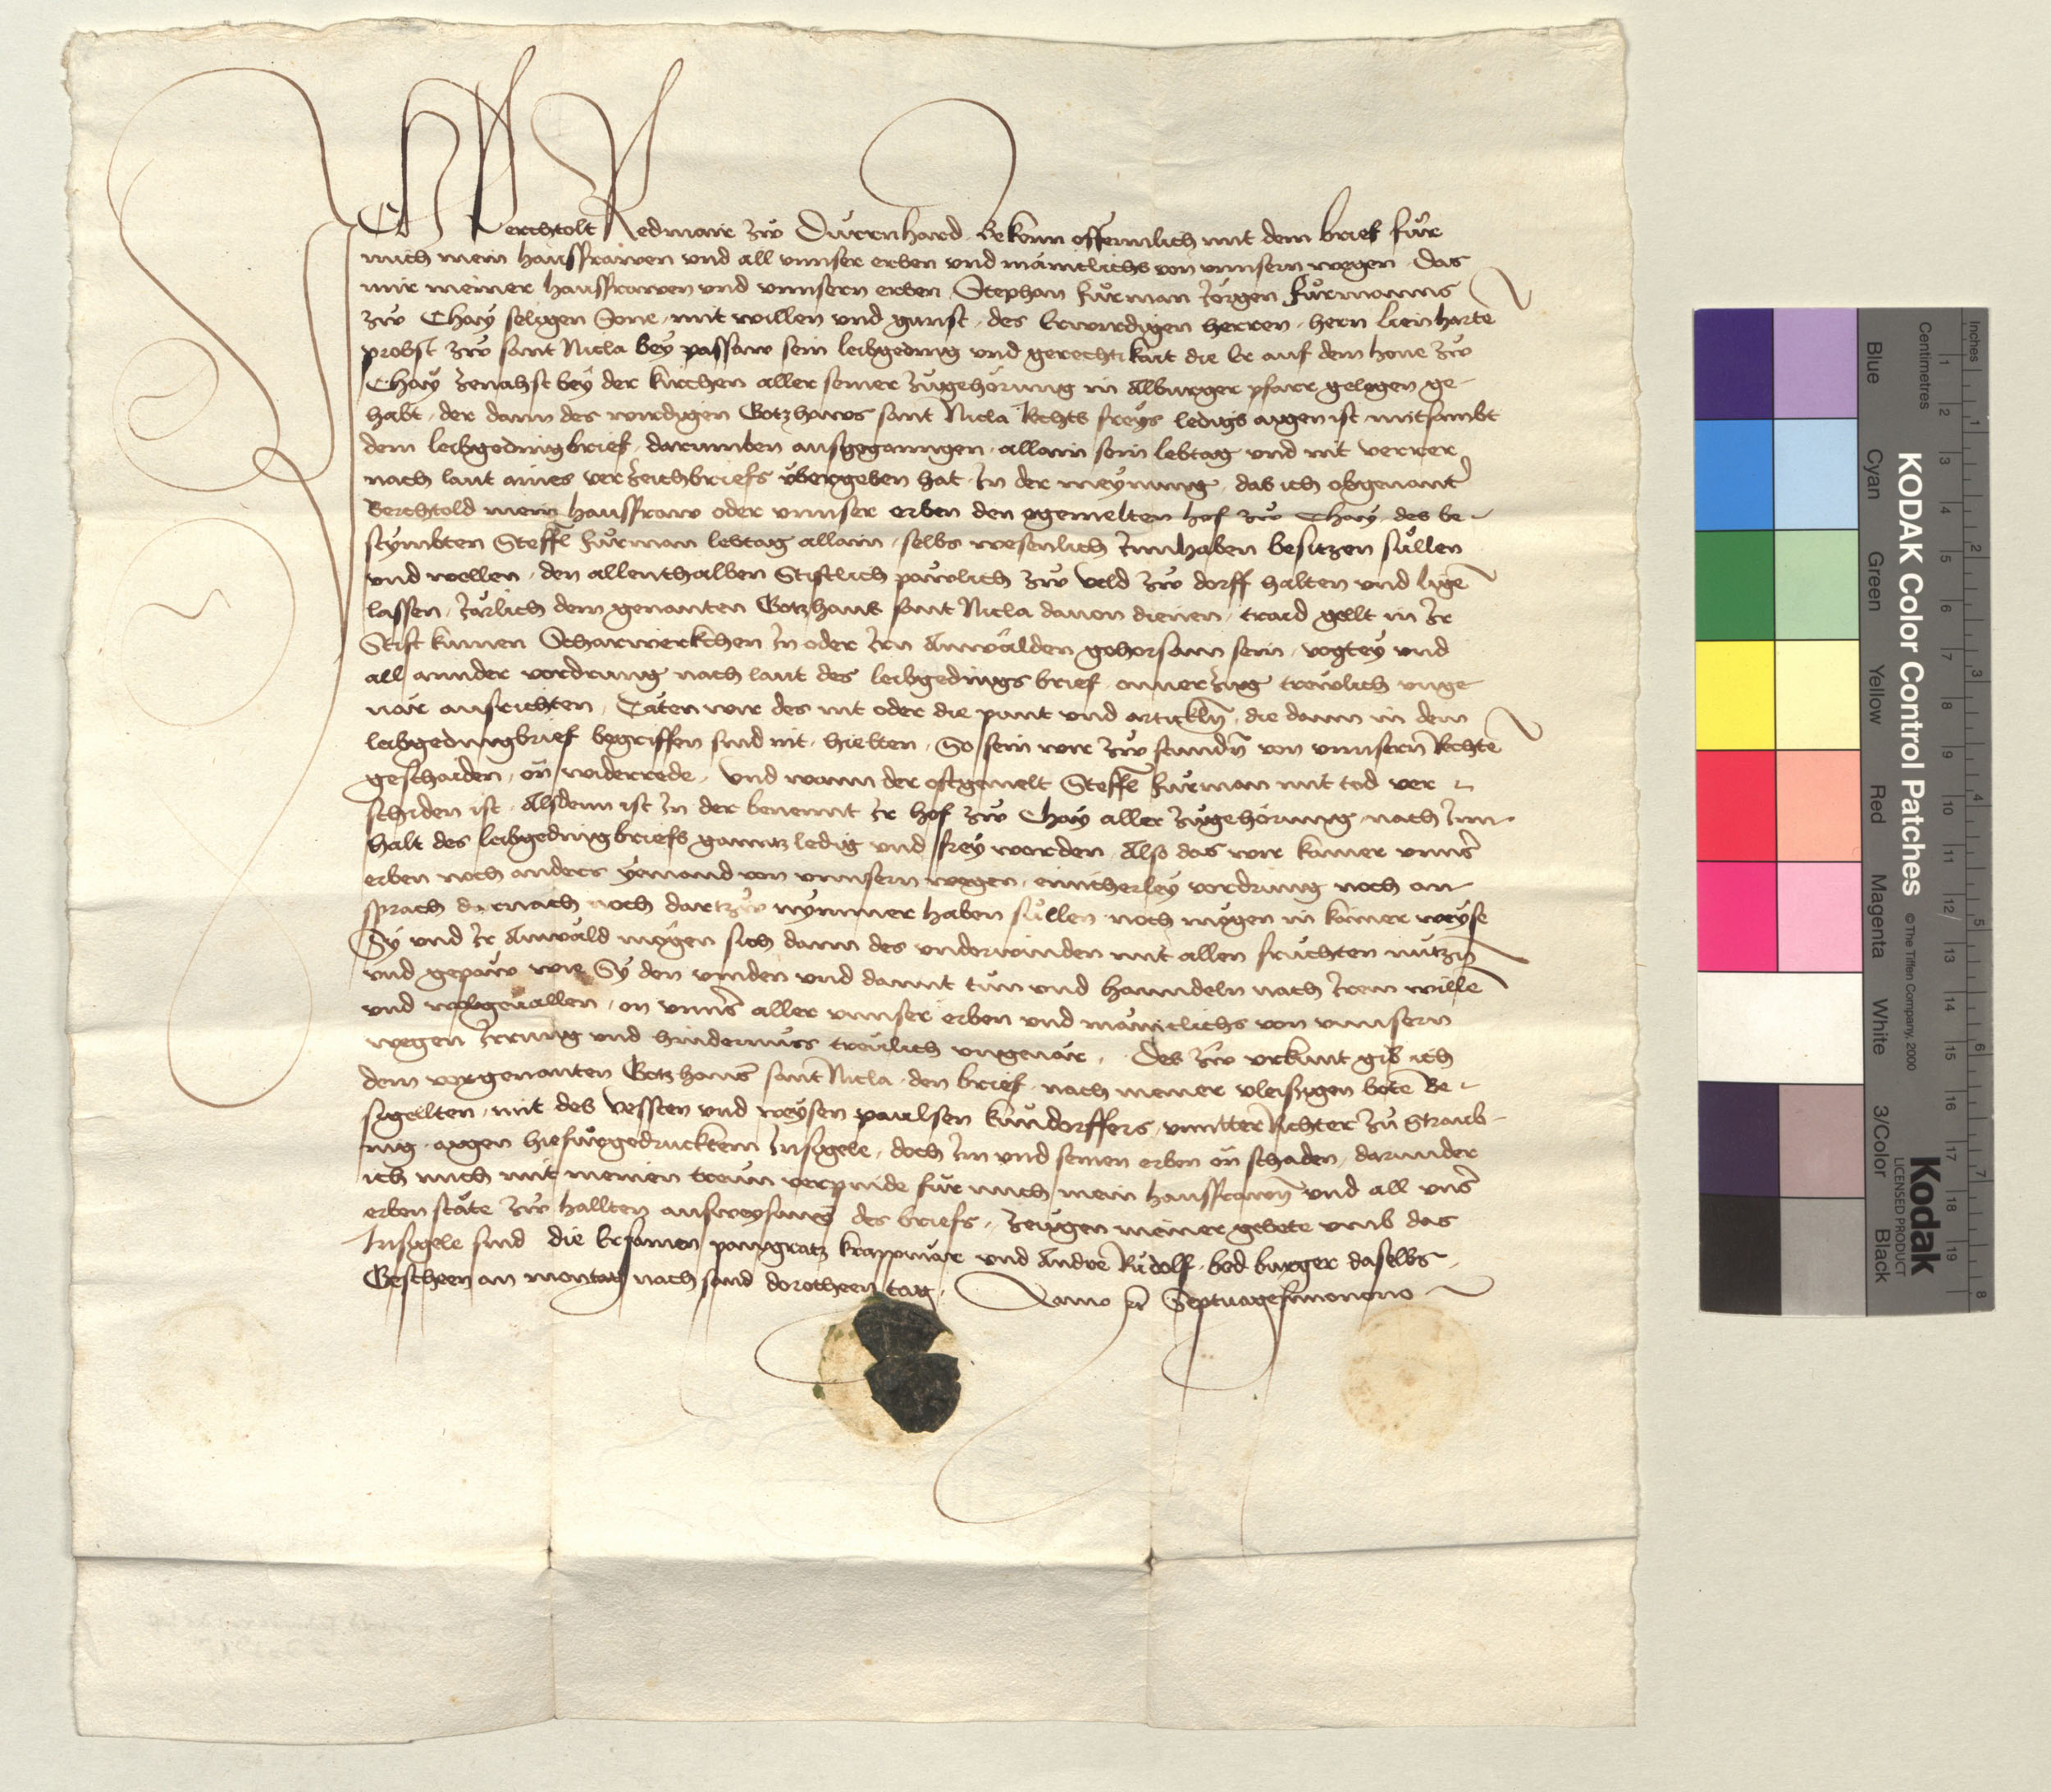 Ich Berchtolt Redmair zw Durrnhard bekenn offennlich mit dem brief für
mich mein hausfrawen vnd all vnnser erben vnd mäniclichs von vnnsern wegen das
mir meiner hausfrawen vnd vnnsern erben Stephan fürman Jörgen fürmanns
zw Chay seligen Sone mit willen vnd gunst des Erwirdigen herren hern lienharte
probst zw sant Nicla bey passaw sein leibgeding vnd gerechtikait die Er auf dem houe zw
Chay zenahst bey der kirchen aller seiner zugehörung in Alburger pfarr gelegen ge-
habt der dann des wirdigen Gotzhaws sant Nicla Rechts freys ledigs aygen ist mitsambt
dem leibgedingbrief darumben ausgegangen allain sein lebtag vnd nit verrer
nach laut aines verzeichbriefs übergeben hat In der meynung das ich obgenant
Berchtold mein hausfraw oder vnnser erben den egemelten hof zw Chay des be-
stymbten Steffl fürman lebtag allain selbs wesenlich Innhaben besitzen süllen
vnd wellen den allenthalben Stiftlich pawlich zw veld zw dorff halten vnd lige
lassen Järlich dem genanten Gotzhaus sant Nicla dauon dienen traid gellt in Ir
Stift kumen Scharwerkchen In oder Irn Anwälden gehorsam sein vogtey vnd
all annder vordrung nach laut des leibgedings brief onuerzug trewlich vnge
uär ausrichten Täten wir des nit oder die punt vnd artickln die dann in dem
leibgedingbrief begriffen sind nit hielten So sein wir zw stundn von vnnsern Rechte
geschaiden on widerrede Vnd wann der oftgemelt Steffl fürman mit tod ver
schiden ist Alsdenn ist In der benennt Ir hof zw Chay aller zugehörung nach Inn-
halt des leibgedingbriefs ganntz ledig vnd frey worden Also das wir kainer vnns
erben noch anders yemand von vnnsern wegen ainicherley vordrung noch an-
sprach darnach noch dartzw nymmer haben süllen noch mögen in kainer weyse
Sy vnd Ir Anwäld mögen sich dann des vnderwinden mit allen fruchten nutzn
vnd gepäw wie Sy den vinden vnd damit tun vnd hanndeln nach Irem wille
vnd wolgeuallen on vnns aller vnnser erben vnd mäniclichs von vnnsern
wegen Irrung vnd hindernuss trewlich vngeuär Des zw vrkunt gib ich
dem vorgenanten Gotzhaus sant Nicla den brief nach meiner vleissigen bete Be-
sigellten mit des vessten vnd weysen paulsen kündorffers vnntter Richter zu Straub-
ing aygen hiefürgedrucktem Insigele doch Im vnd seinen erben on schaden darunder
ich mich mit meinen trewn verpinde für mich mein hausfrawn vnd all vns
erben stäte zw hallten ausweysung des briefs Zeugen meiner gebete vmb das
Insigele sind die Ersamen panngratz krappmair vnd Andre Rudolf bed burger daselbs
Gescheen an montag nach sand dorotheen tag Anno &c Septuagesimonono
Inches
Centimetres
KODAK Color Control Patches
© The Tiffen Company, 2000
Kodak
LICENSED PRODUCT
Blue
Cyan
Green
Yellow
Red
Magenta
White
3/Color
Black
1 2 3 4 5 6 7 8 9 10 11 12 13 14 15 16 17 18 19
1 2 3 4 5 6 7 8